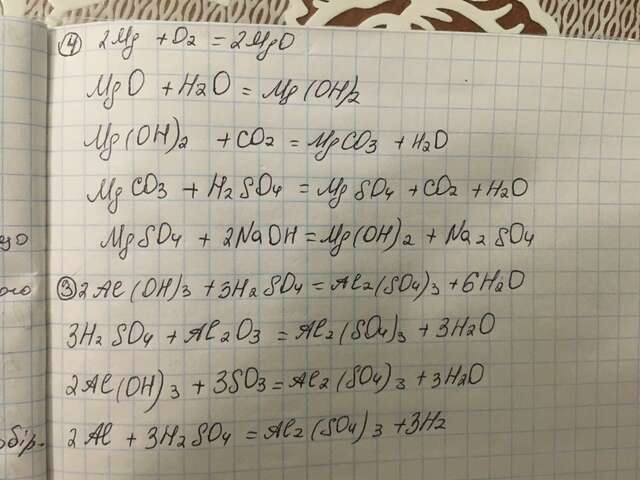 ④ 2Mg + O2 = 2MgO
MgO + H2O = Mg(OH)2
Mg(OH)2 + CO2 = MgCO3 + H2O
MgCO3 + H2SO4 = MgSO4 + CO2 + H2O
MgSO4 + 2NaOH = Mg(OH)2 + Na2SO4
③ 2Al(OH)3 + 3H2SO4 = Al2(SO4)3 + 6H2O
3H2SO4 + Al2O3 = Al2(SO4)3 + 3H2O
2Al(OH)3 + 3SO3 = Al2(SO4)3 + 3H2O
2Al + 3H2SO4 = Al2(SO4)3 + 3H2